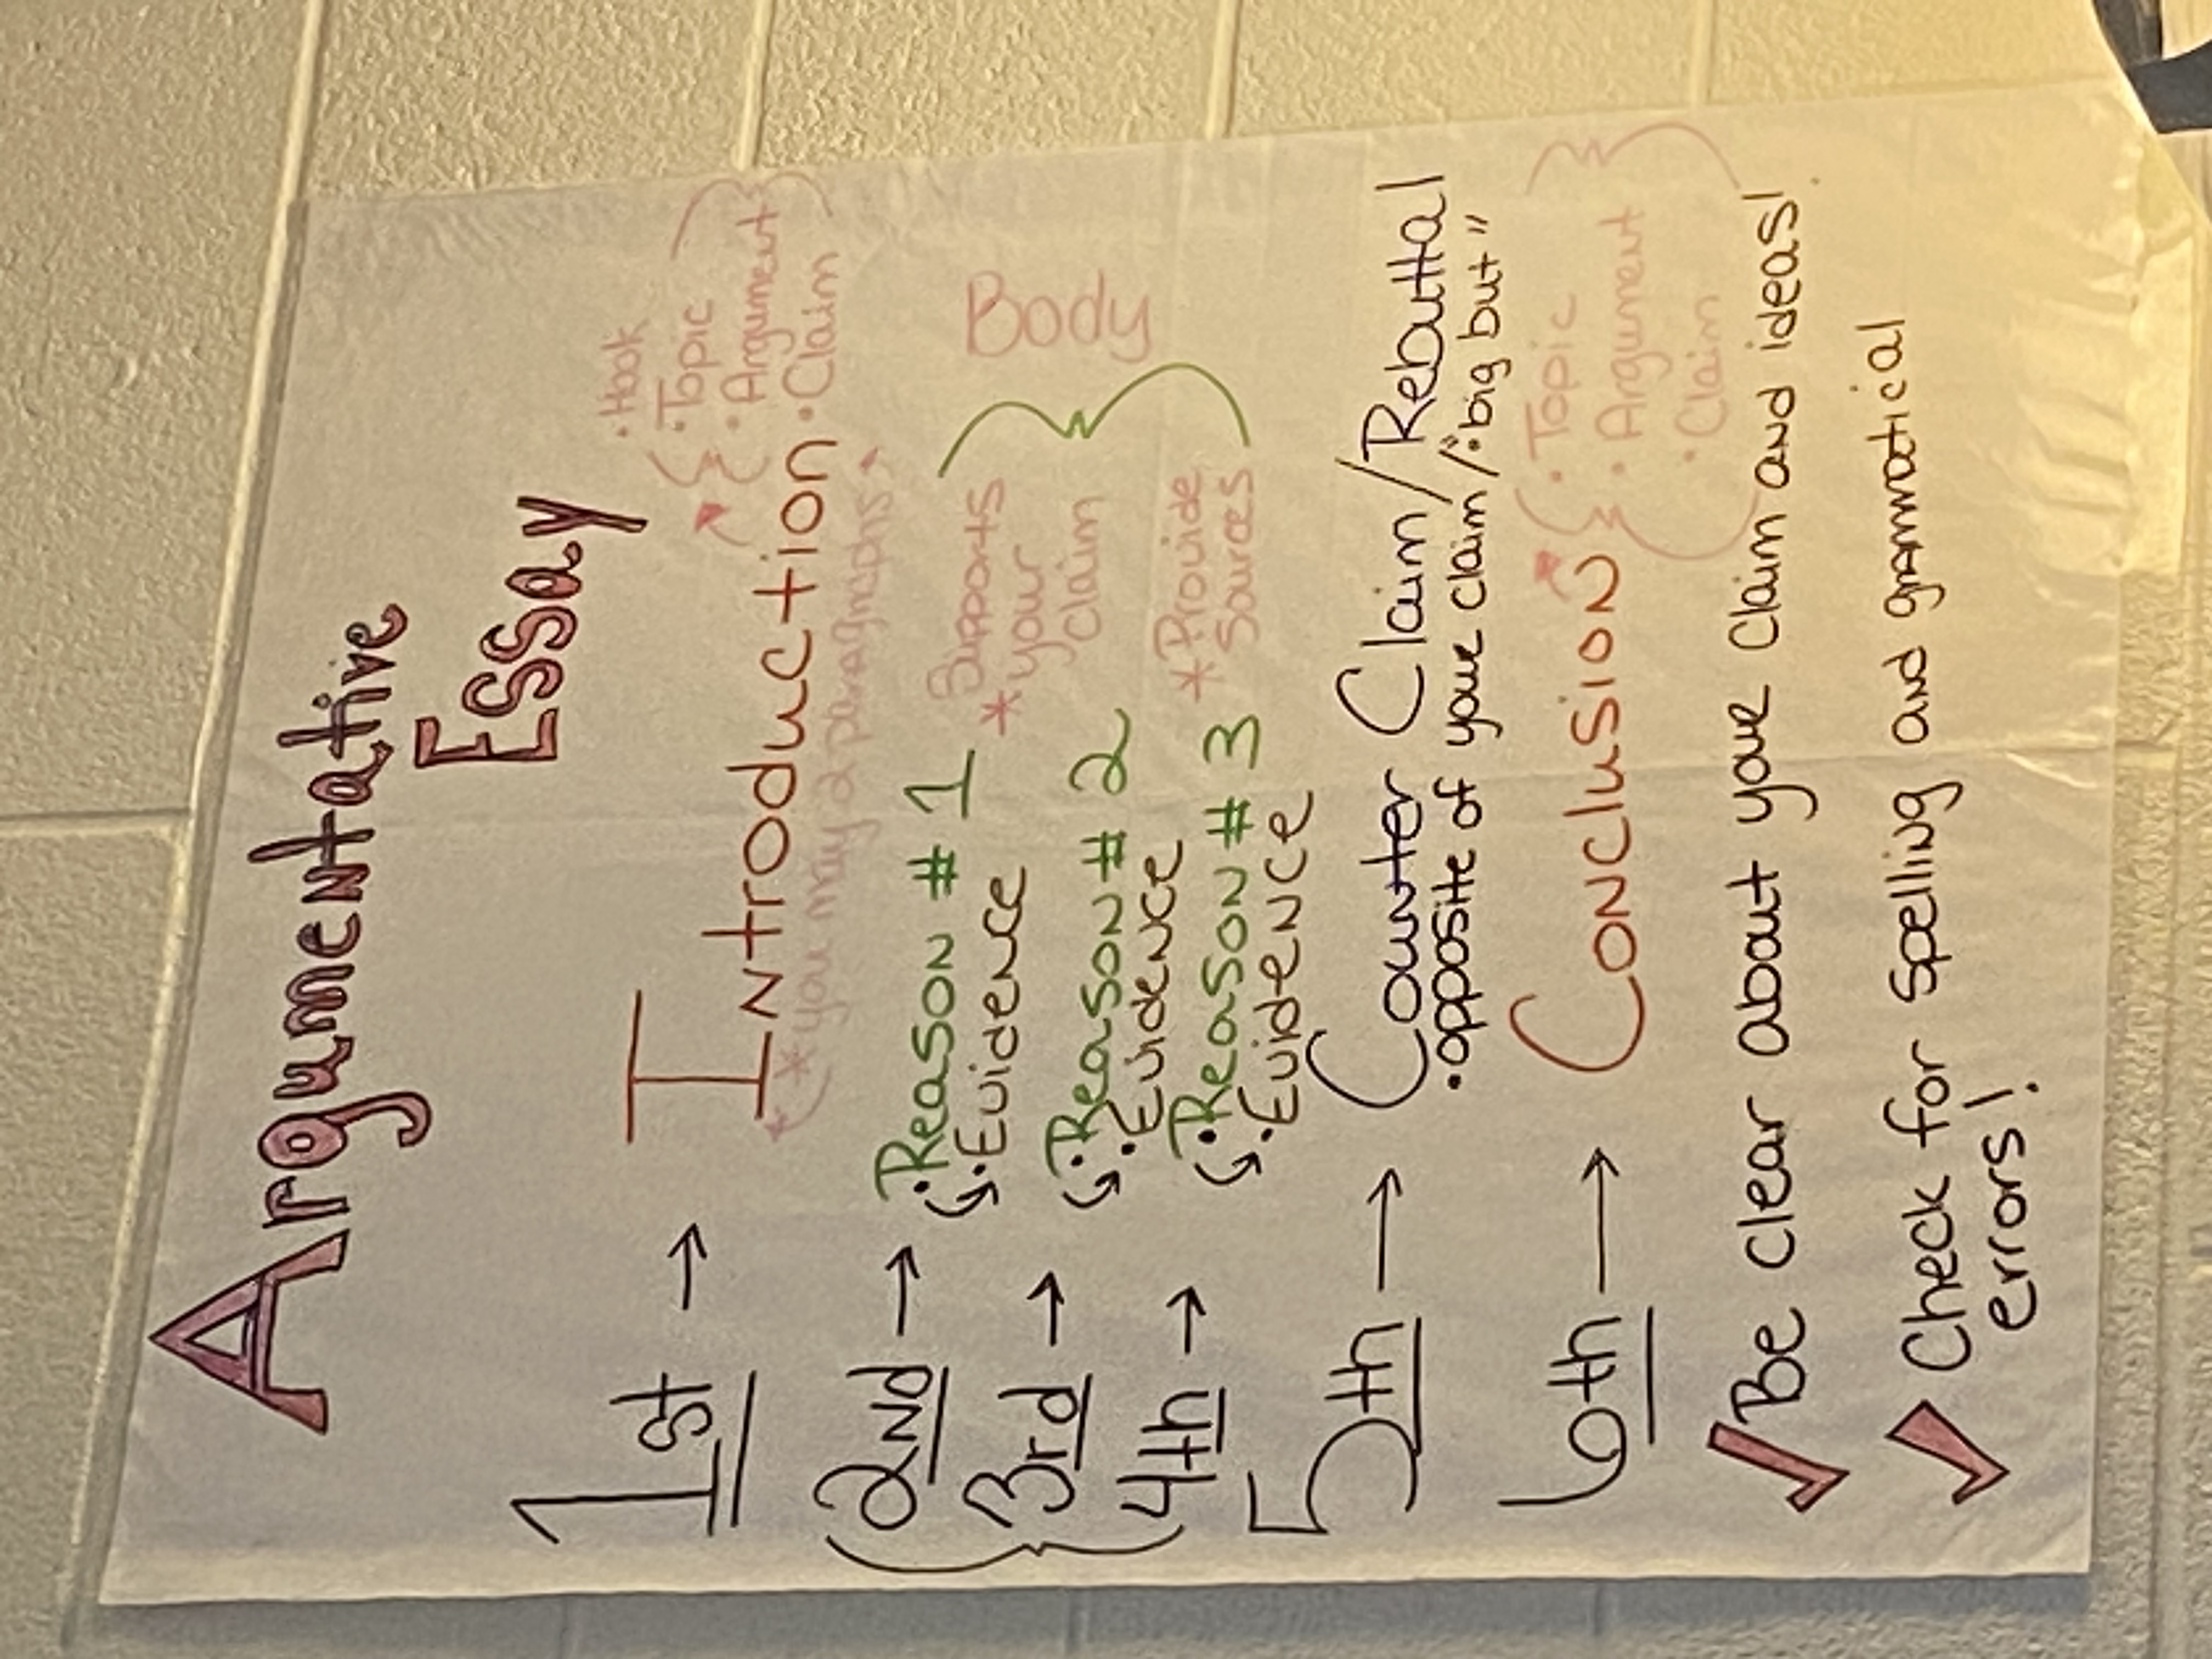 Argumentative
Essay
1st → Introduction
• Hook
• Topic
• Argument
• Claim
* you may 2 paragraphs *
2nd → • Reason #1
• Evidence
3rd → • Reason #2
• Evidence
4th → • Reason #3
• Evidence
* Supports
your
claim
* Provide
Sources
Body
5th → Counter Claim/Rebuttal
• opposite of your claim/ • "big but"
6th → Conclusion
• Topic
• Argument
• Claim
✓ Be clear about your claim and ideas!
✓ Check for spelling and grammatical
errors!